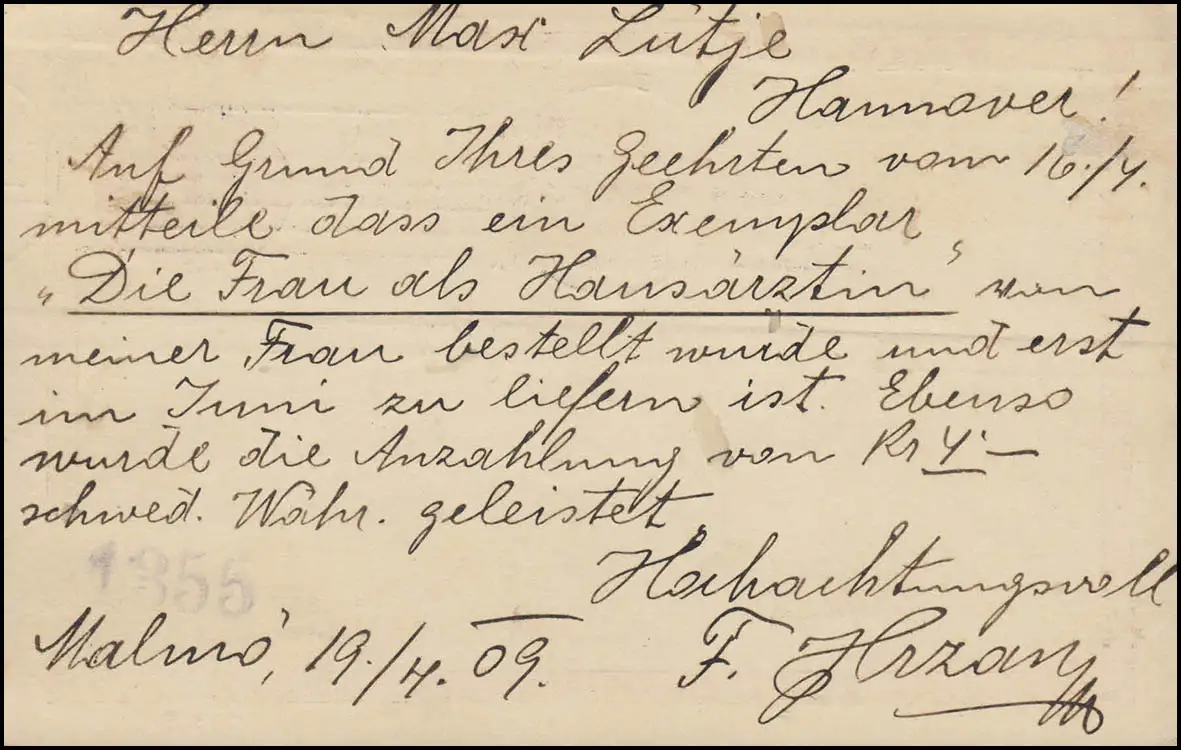 Herrn Max Lütje
Hannover!
Auf Grund Ihres Geehrten vom 16./4.
mitteile dass ein Exemplar
"Die Frau als Hausärztin" von
meiner Frau bestellt wurde und erst
im Juni zu liefern ist. Ebenso
wurde die Anzahlung von Kr 4.—
schwed. Währ. geleistet.
Hochachtungsvoll
1355
Malmö, 19./4. 09. F. Hrzan